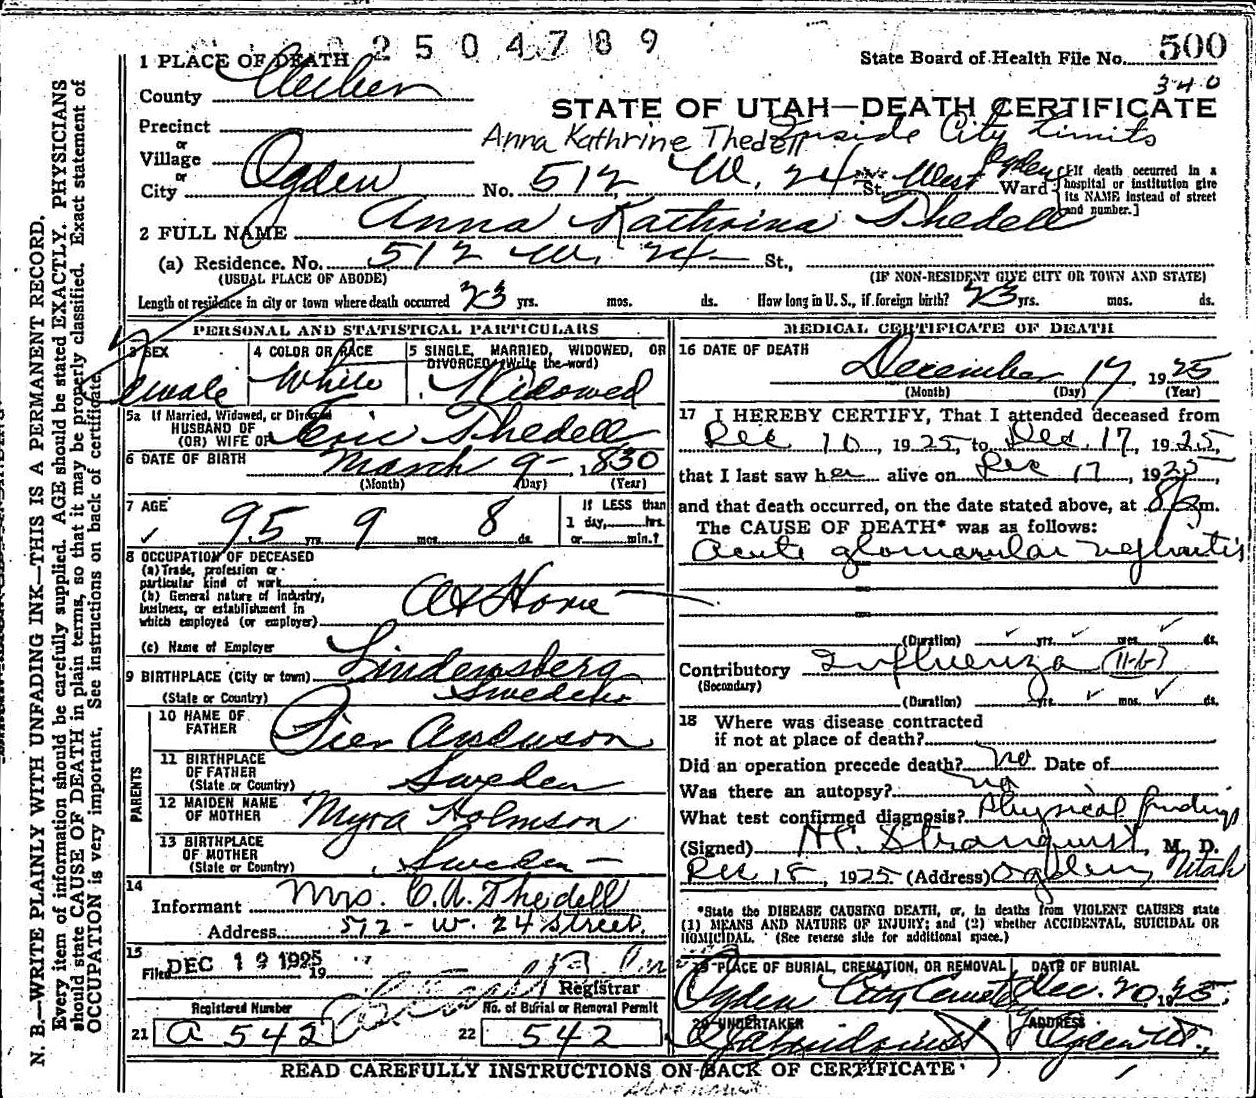 2504789
State Board of Health File No. 500
340
1 PLACE OF DEATH
County Weber
STATE OF UTAH—DEATH CERTIFICATE
Precinct
or
Village
or
City Ogden
Anna Kathrine Thedell Inside City Limits
No. 512 W. 24 St. West Ogden Ward
[If death occurred in a hospital or institution give its NAME instead of street and number.]
2 FULL NAME Anna Kathrina Thedell
(a) Residence. No. 512 W. 24 St.,
(USUAL PLACE OF ABODE) (IF NON-RESIDENT GIVE CITY OR TOWN AND STATE)
Length of residence in city or town where death occurred 23 yrs. mos. ds. How long in U. S., if foreign birth? 23 yrs. mos. ds.
PERSONAL AND STATISTICAL PARTICULARS
3 SEX
Female
4 COLOR OR RACE
White
5 SINGLE, MARRIED, WIDOWED, OR DIVORCED (Write the word)
Widowed
5a If Married, Widowed, or Divorced
HUSBAND OF
(OR) WIFE OF Eric Thedell
6 DATE OF BIRTH March 9 - 1830
(Month) (Day) (Year)
7 AGE 95 yrs. 9 mos. 8 ds.
If LESS than
1 day,......hrs.
or......min.?
8 OCCUPATION OF DECEASED
(a) Trade, profession or particular kind of work
(b) General nature of Industry, business, or establishment in which employed (or employer) At Home
(c) Name of Employer
9 BIRTHPLACE (City or town) Lindensberg
(State or Country) Sweden
PARENTS
10 NAME OF FATHER Pier Anderson
11 BIRTHPLACE OF FATHER
(State or Country) Sweden
12 MAIDEN NAME OF MOTHER Myra Holmson
13 BIRTHPLACE OF MOTHER
(State or Country) Sweden -
14
Informant Mrs. C. A. Thedell
Address 512 - W. 24 Street.
15
Filed DEC 19 1925 19
Registrar
Registered Number
21 a 542
No. of Burial or Removal Permit
22 542
MEDICAL CERTIFICATE OF DEATH
16 DATE OF DEATH
December 17, 1925
(Month) (Day) (Year)
17 I HEREBY CERTIFY, That I attended deceased from
Dec 10, 1925, to Dec. 17, 1925,
that I last saw her alive on Dec 17, 1925
and that death occurred, on the date stated above, at 8 m.
The CAUSE OF DEATH* was as follows:
Acute glomerular nephritis
(Duration) yrs. mos. ds.
Contributory Influenza (11-b)
(Secondary)
(Duration) yrs. mos. ds.
18 Where was disease contracted
if not at place of death?
Did an operation precede death? no Date of
Was there an autopsy? no
What test confirmed diagnosis? Physical findings
(Signed) H.C. Stranquist, M. D.
Dec 18, 1925 (Address) Ogden, Utah
*State the DISEASE CAUSING DEATH, or, in deaths from VIOLENT CAUSES state
(1) MEANS AND NATURE OF INJURY; and (2) whether ACCIDENTAL, SUICIDAL OR
HOMICIDAL. (See reverse side for additional space.)
19 PLACE OF BURIAL, CREMATION, OR REMOVAL
Ogden City Cemet
DATE OF BURIAL
Dec. 20, 1925.
20 UNDERTAKER
ADDRESS
Ogden Ut.,
READ CAREFULLY INSTRUCTIONS ON BACK OF CERTIFICATE
N. B.—WRITE PLAINLY WITH UNFADING INK—THIS IS A PERMANENT RECORD.
Every item of information should be carefully supplied. AGE should be stated EXACTLY. PHYSICIANS
should state CAUSE OF DEATH in plain terms, so that it may be properly classified. Exact statement of
OCCUPATION is very important. See instructions on back of certificate.